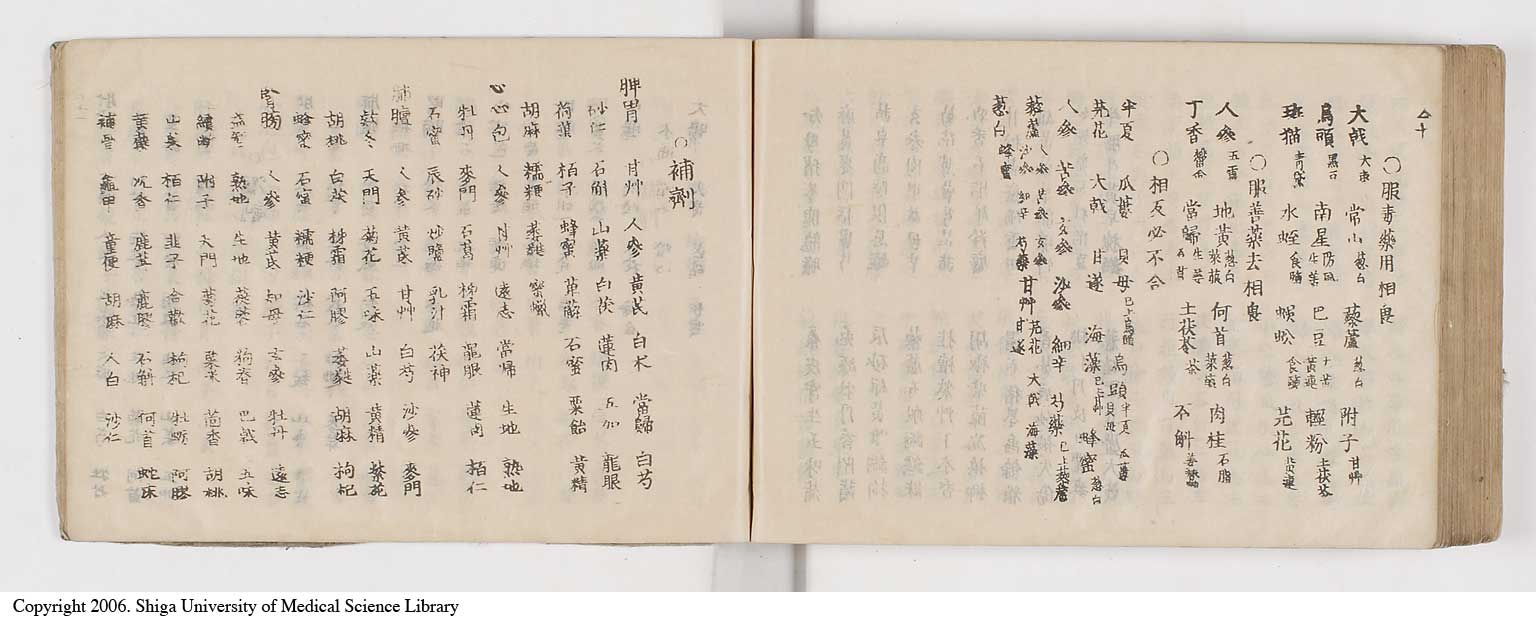 五十
○服毒薬用相良
大戟 大棗 常山 葱白 藜蘆 葱白 附子 甘艸
烏頭 黒豆 南星 生姜 防風 巴豆 輕粉 土茯苓
斑猫 水蛭 食鹽 蜈蚣 食鹽 芫花
○服善薬去相畏
人参 五霊 地黄 葱白 何首 葱白 肉桂 石脂
丁香 欝金 當歸 生姜 土茯苓 茶
○相反必不合
半夏 瓜蔞 貝母 已上烏頭 烏頭 半夏 貝母
芫花 大戟 甘遂 海藻 已上甘艸 蜂蜜 葱白
人参 苦参 玄参 沙参 細辛 芍薬 已上藜蘆
藜蘆 人参 苦参 玄参 沙参 細辛 芍薬 甘艸 甘遂 芫花 大戟 海藻
葱白 蜂蜜
○補劑
脾胃 甘艸 人参 黄芪 白朮 當歸 白芍
砂仁 石斛 山薬 白茯 蓮肉 五加 龍眼
荷葉 栢子 蜂蜜 萆薢 石蜜 粟飴 黄精
胡麻 糯粳 蜜蠟
心心包 人参 甘艸 遠志 當帰 生地 熟地
牡丹 麥門 石菖 柹霜 龍眼 蓮肉 栢仁
石蜜 辰砂 乳汁 茯神
肺膻 人参 黄芪 甘艸 白芍 沙参 麥門
欵冬 天門 菊花 五味 山薬 黄精 紫苑
胡桃 白茯 柹霜 阿膠 胡麻 枸杞
蜂蜜 石蜜 糯粳 沙仁
腎胸 人参 黄芪 知母 玄参 牡丹 遠志
熟地 生地 狗脊 巴戟 五味
續断 附子 天門 葵花 茴香 胡桃
山茱 栢仁 韭子 合歡 枸杞 牡蛎 阿膠
沉香 鹿茸 鹿膠 石斛 何首 蛇床
補骨 龜甲 童便 胡麻 人白 沙仁
Copyright 2006. Shiga University of Medical Science Library